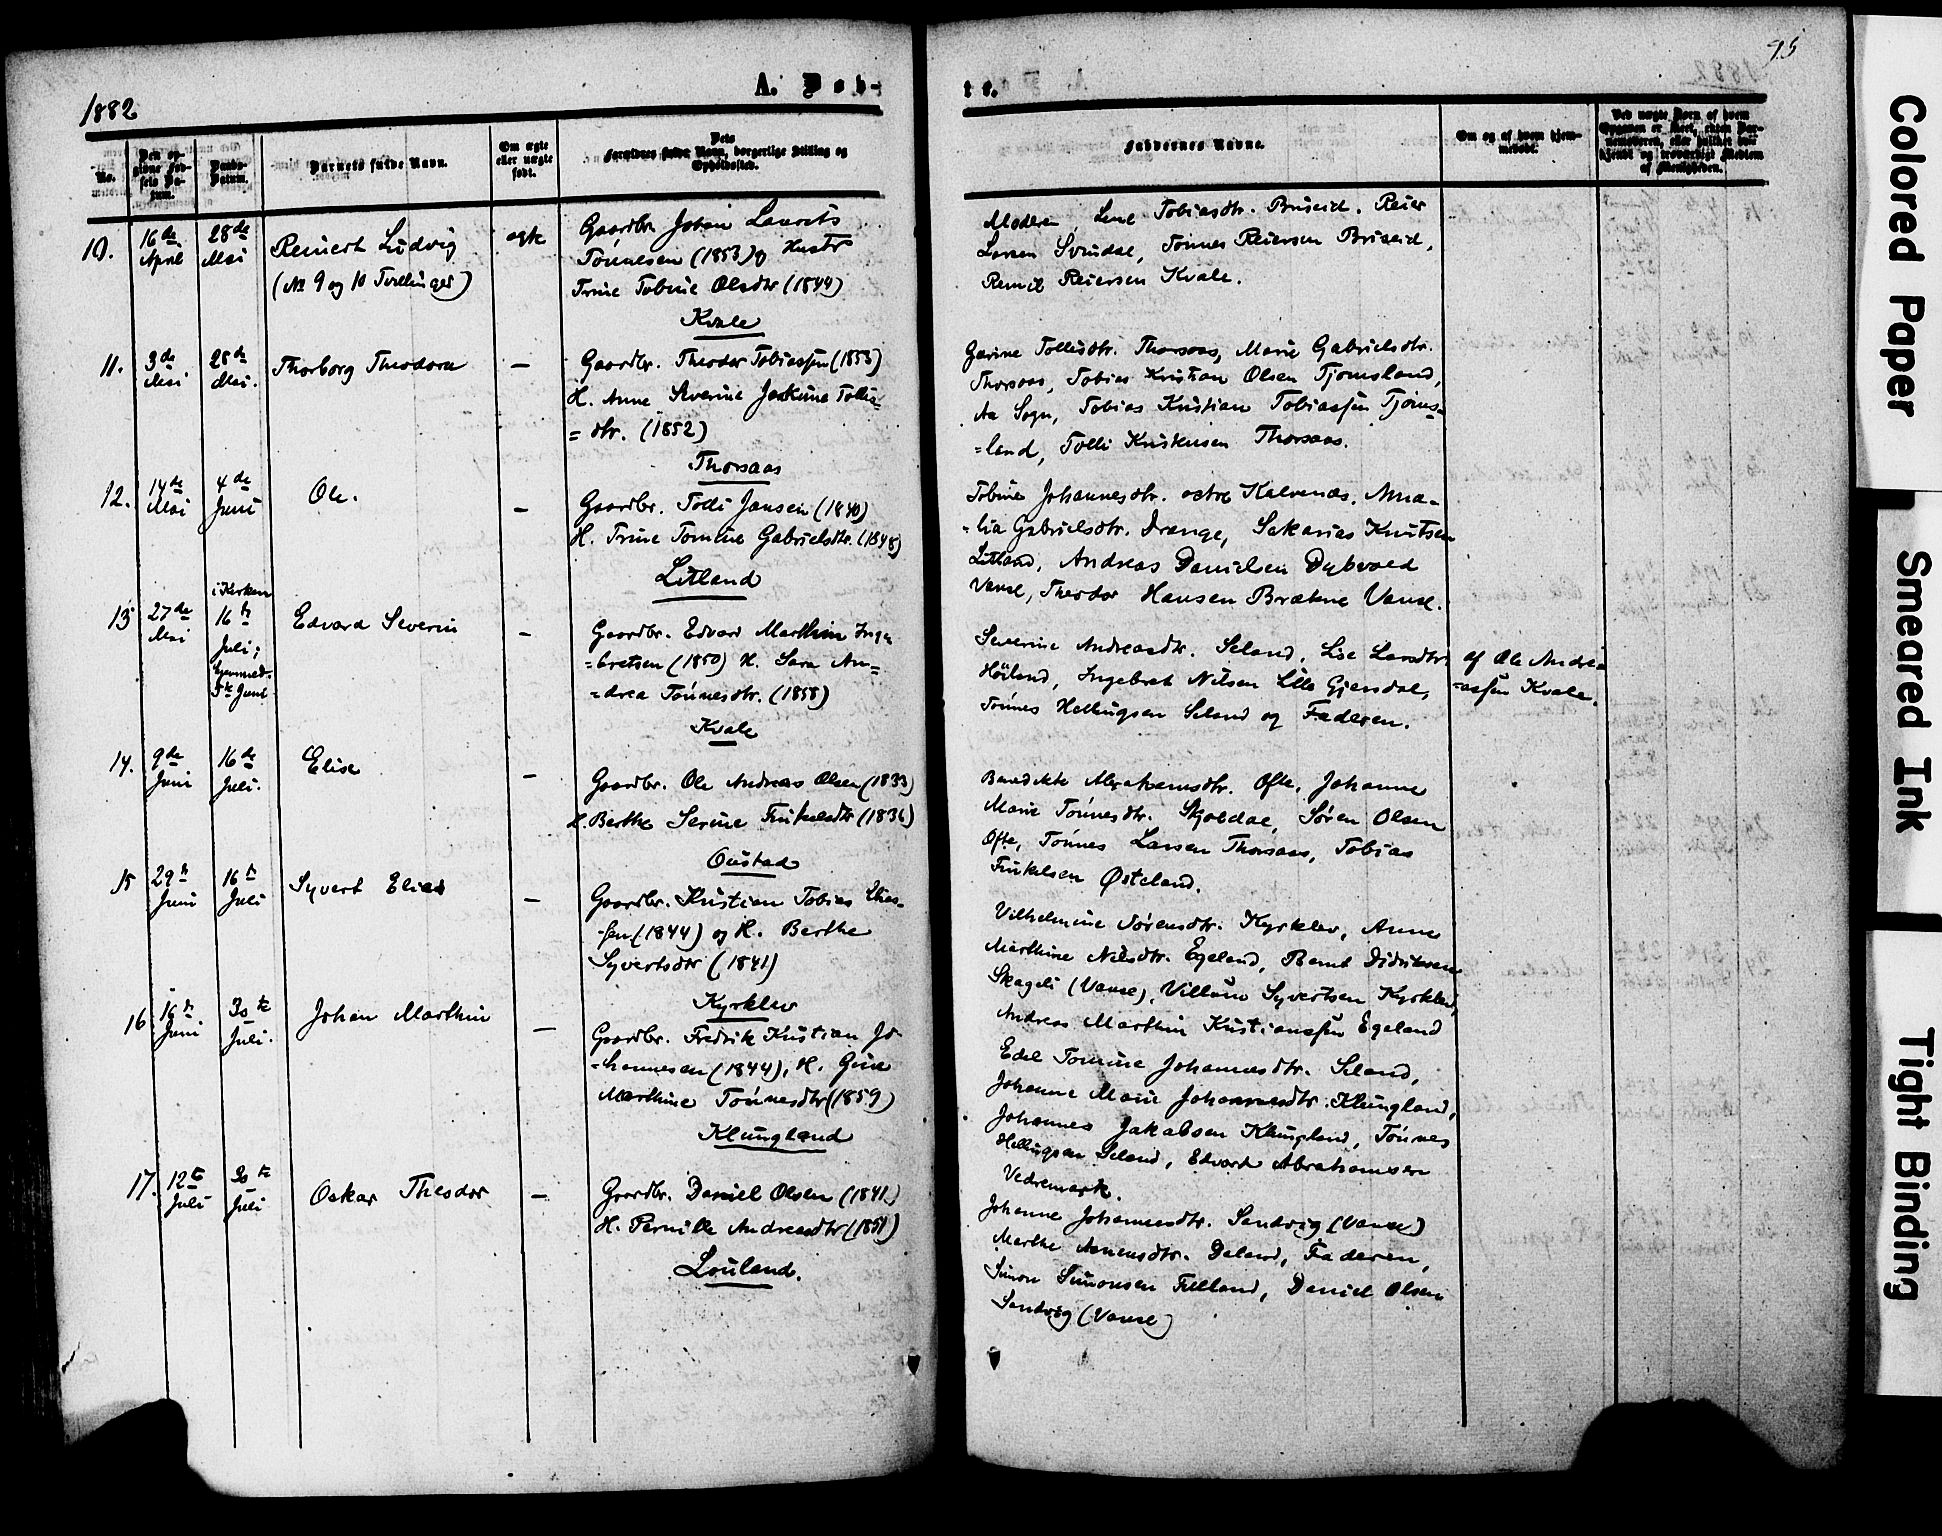 1882
A. Døb-
No.
Barnets fulde Navn.
Om ægte eller uægte født.
10.
16de April
28de Mai
Reinert Ludvig
(No 9 og 10 Tvillinger)
ægte
Gaardbr. Johan Laurits
Tönnesen (1853) og Hustr
Trine Tobine Olsdtr (1844)
Kvale
11.
3de Mai
28de Mai.
Thorborg Theodora
—
Gaardbr. Theodor Tobiassen (1853)
H. Anne Severine Jaskine Tollis=
= dtr. (1852)
Thorsaas
12.
14de Mai
4de Juni
Ole.
—
Gaardbr. Tolli Jansen (1840)
H. Trine Tomine Gabrielsdtr. (1848)
Litland
13
27de Mai
i Kirken
16te Juli;
hjemmed.
5te Juni
Edvard Severin
—
Gaardbr. Edvard Marthin Inge
=bretsen (1850) H. Sara An=
=drea Tönnesdtr. (1858)
Kvale
14.
9de Juni
16de Juli.
Elise
—
Gaardbr. Ole Andreas Olsen (1833)
H. Berthe Serine Finkelsdtr (1836)
Oustad
15
29de Juni
16de Juli
Syvert Elias
—
Gaardbr. Kristian Tobias Elias-
-sen (1844) og H. Berthe
Syvertsdtr (1841)
Kyrklev
16.
16de Juni
30te Juli.
Johan Marthin
—
Gaardbr. Fredrik Kristian Jo-
-hannesen (1844), H. Gine
Marthine Tönnesdtr (1859)
Klungland
17.
12te Juli
30te Juli
Oskar Theodor
—
Gaardbr. Daniel Olsen (1841)
H. Pernille Andreasdtr (1851)
Louland.
95
te.
Faddernes Navne.
Om og af hvem hjemmedøbt.
Moderen, Lene Tobiasdtr. Briseid, Reier
Larsen Svindal, Tönnes Reiersen Briseid,
Reinert Reiersen Kvale.
Garine Tollisdtr. Thorsaas, Marie Gabrielsdtr.
Thorsaas, Tobias Kristian Olsen Tjomsland,
Aa Sogn, Tobias Kristian Tobiassen Tjoms=
=land, Tolli Kristensen Thorsaas.
Tobine Johannesdtr. östre Kalvenæs, Ama=
=lia Gabrielsdtr. Drange, Sakarias Knutsen
Litland, Andreas Danielsen Dybvold
Vanse, Theodor Hansen Brækne Vanse.
Severine Andreasdtr. Seland, Lise Larsdtr.
Höiland, Ingebret Nilsen Lille Gjersdal,
Tönnes Hellingsen Seland og Faderen.
af Ole Andre=
=assen Kvale.
Benedikte Abrahamsdtr. Ofte, Johanne
Marie Tönnesdtr. Skjoldal, Søren Olsen
Ofte, Tönnes Larsen Thorsaas, Tobias
Finkelsen Østeland.
Vilhelmine Sörensdtr. Kyrklev, Anne
Marthine Nilsdtr. Egeland, Bernt Didriksen
Skageli (Vanse), Villum Syvertsen Kyrklev,
Andreas Marthin Kristianssen Egeland
Edel Tomine Johannesdtr. Seland,
Johanne Marie Johannesdtr. Klungland,
Johannes Jakobsen Klungland, Tönnes
Hellingsen Seland, Edvard Abrahamsen
Vedremark.
Johanne Johannesdtr. Sandvig (Vanse)
Marthe Aanensdtr. Daland, Faderen,
Simon Simonsen Fidland, Daniel Olsen
Sandvig (Vanse)
Colored Paper
Smeared Ink
Tight Binding